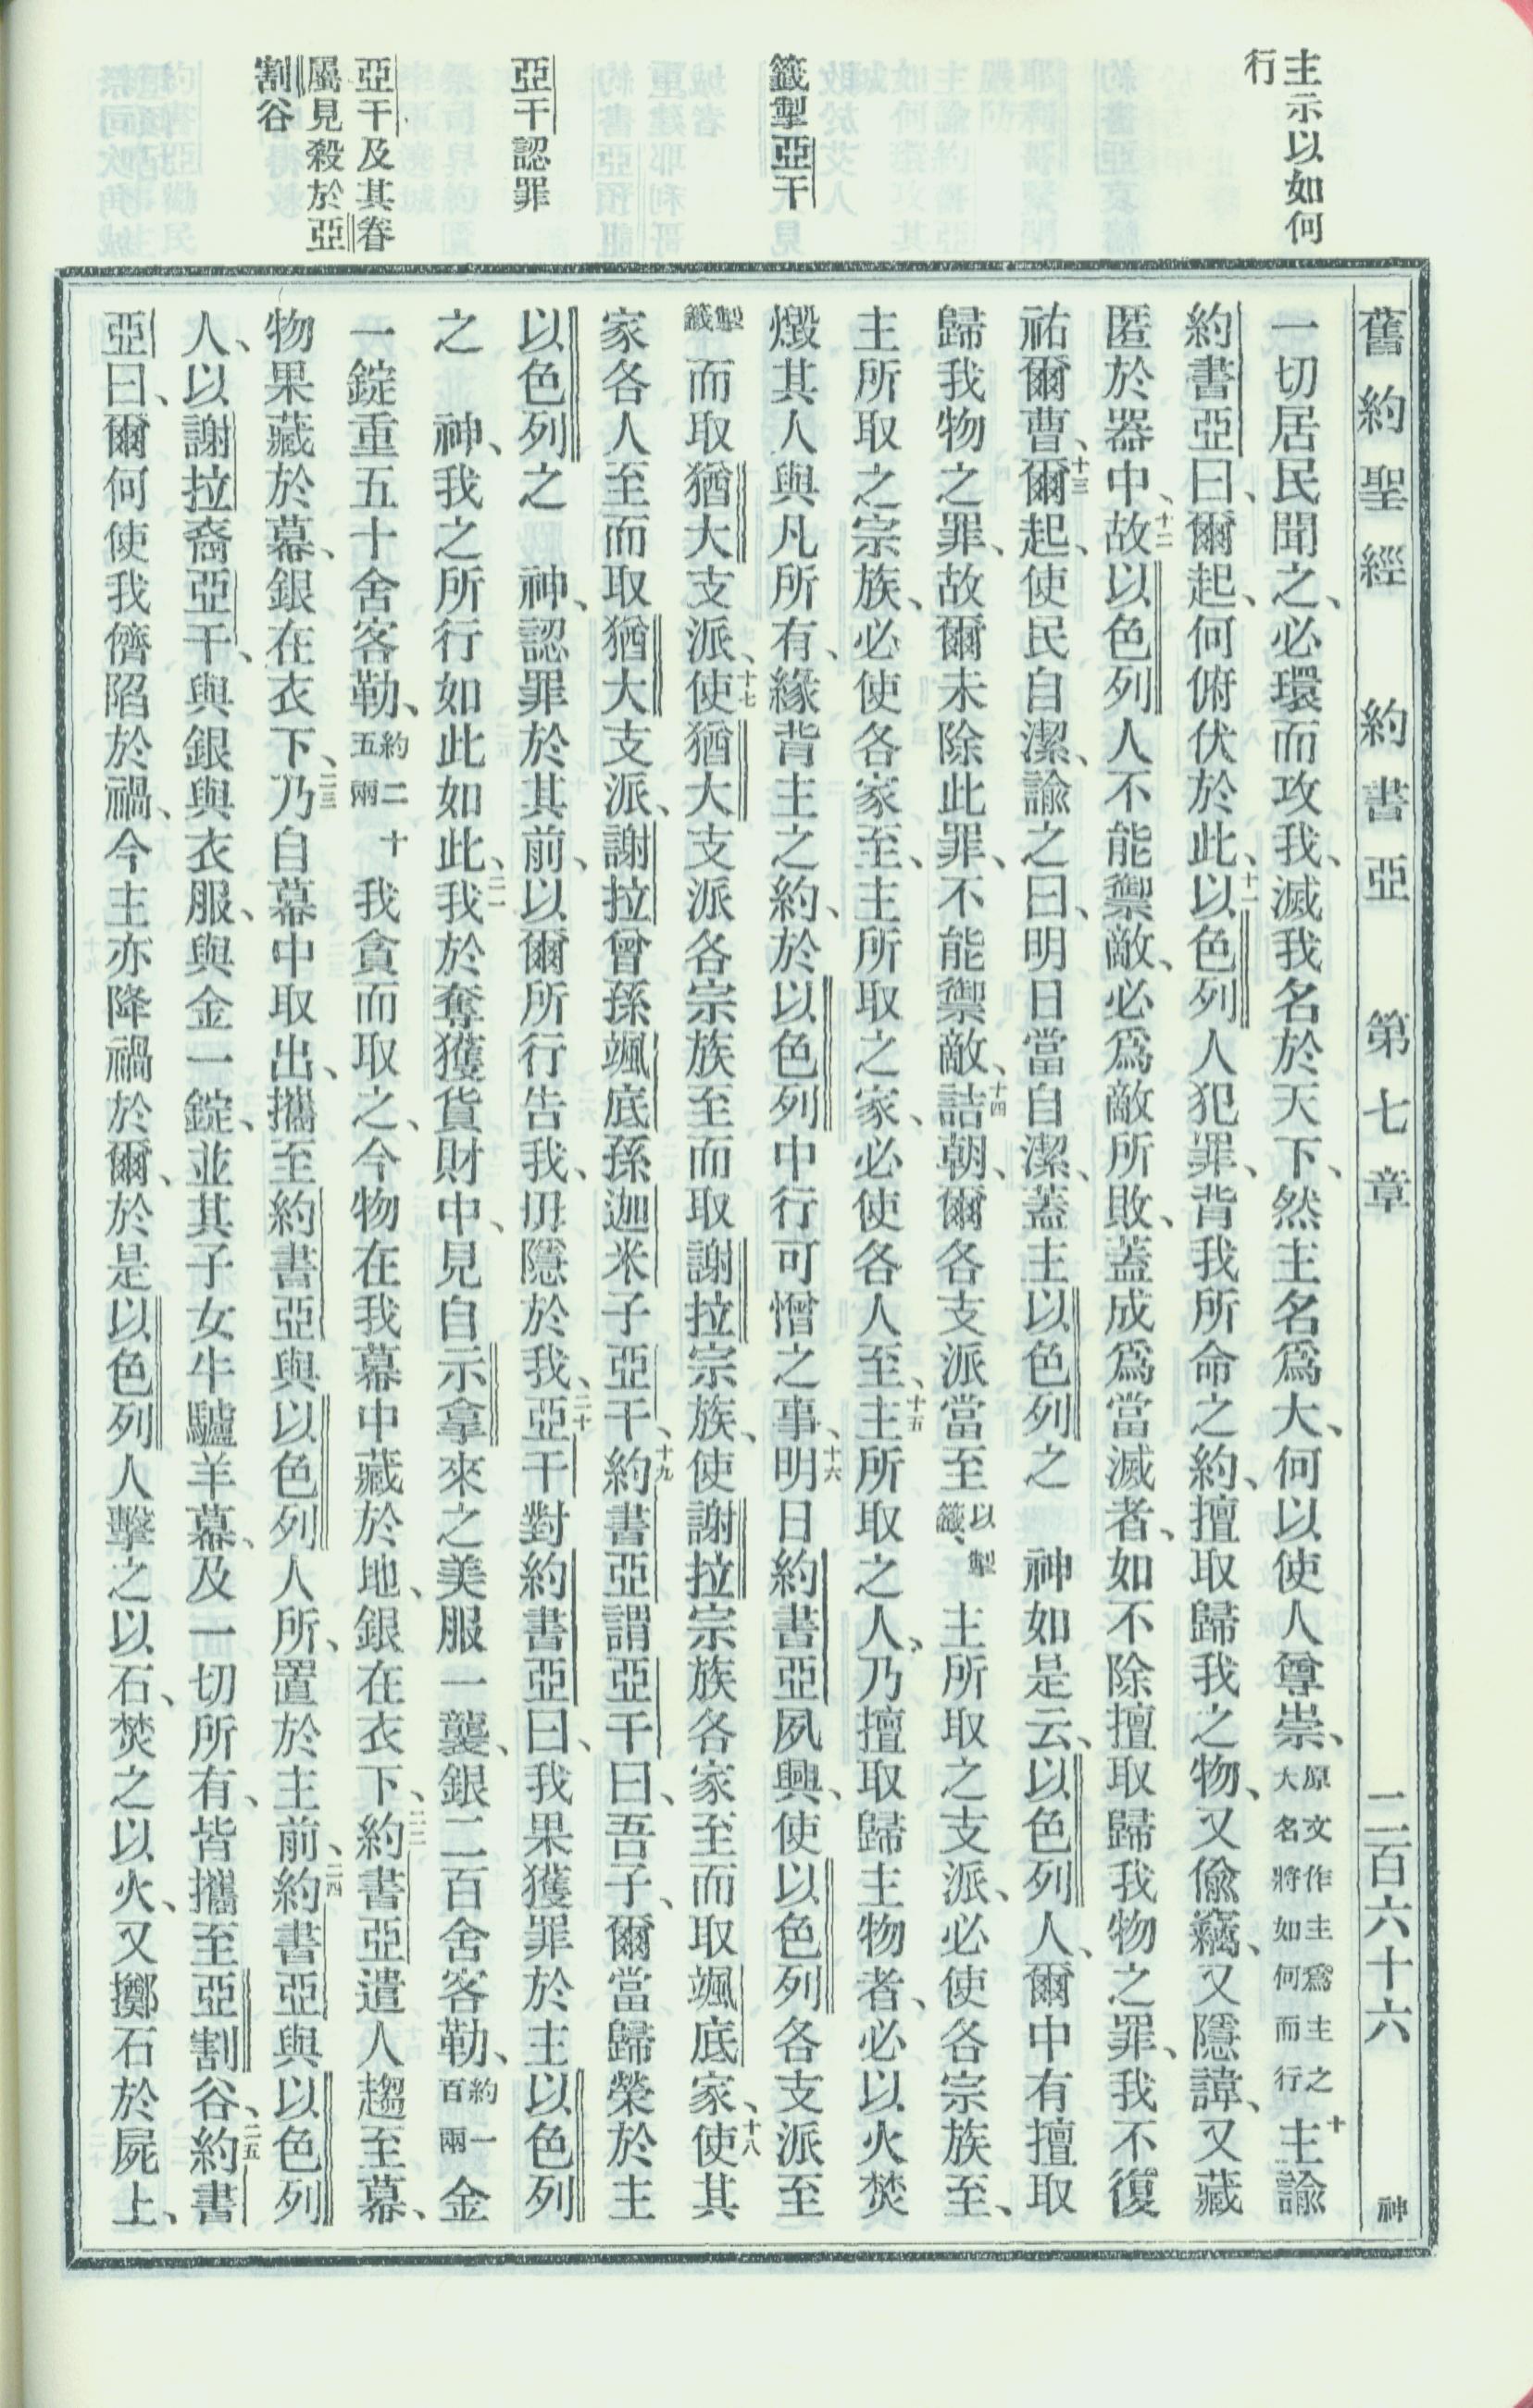 舊約聖經 約書亞 第七章 二百六十六 神
主示以如何
行
籤掣亞干
亞干認罪
亞干及其眷
屬見殺於亞
割谷
一切居民聞之、必環而攻我、滅我名於天下、然主名爲大、何以使人尊崇、原文作主爲主之大名將如何而行十主諭
約書亞曰、爾起、何俯伏於此、十一以色列人犯罪、背我所命之約、擅取歸我之物、又偸竊、又隱諱、又藏
匿於器中、十二故以色列人不能禦敵、必爲敵所敗、蓋成爲當滅者、如不除擅取歸我物之罪、我不復
祐爾曹、十三爾起、使民自潔、諭之曰、明日當自潔、蓋主以色列之 神如是云、以色列人、爾中有擅取
歸我物之罪、故爾未除此罪、不能禦敵、十四詰朝、爾各支派當至以掣籤、主所取之支派、必使各宗族至、
主所取之宗族、必使各家至、主所取之家、必使各人至、十五主所取之人、乃擅取歸主物者、必以火焚
燬其人與凡所有、緣背主之約、於以色列中行可憎之事、十六明日約書亞夙興、使以色列各支派至
掣籤而取猶大支派、十七使猶大支派各宗族至而取謝拉宗族、使謝拉宗族各家至而取颯底家、十八使其
家各人至而取猶大支派、謝拉曾孫颯底孫迦米子亞干、十九約書亞謂亞干曰、吾子、爾當歸榮於主
以色列之 神、認罪於其前、以爾所行告我、毋隱於我、二十亞干對約書亞曰、我果獲罪於主以色列
之 神、我之所行如此如此、二一我於奪獲貨財中、見自示拿來之美服一襲、銀二百舍客勒、約一百兩金
一錠重五十舍客勒、約二十五兩我貪而取之、今物在我幕中藏於地、銀在衣下、二二約書亞遣人趨至幕、
物果藏於幕、銀在衣下、二三乃自幕中取出、攜至約書亞與以色列人所、置於主前、二四約書亞與以色列
人、以謝拉裔亞干、與銀與衣服、與金一錠、並其子女牛驢羊幕、及一切所有、皆攜至亞割谷、二五約書
亞曰、爾何使我儕陷於禍、今主亦降禍於爾、於是以色列人擊之以石、焚之以火、又擲石於屍上、